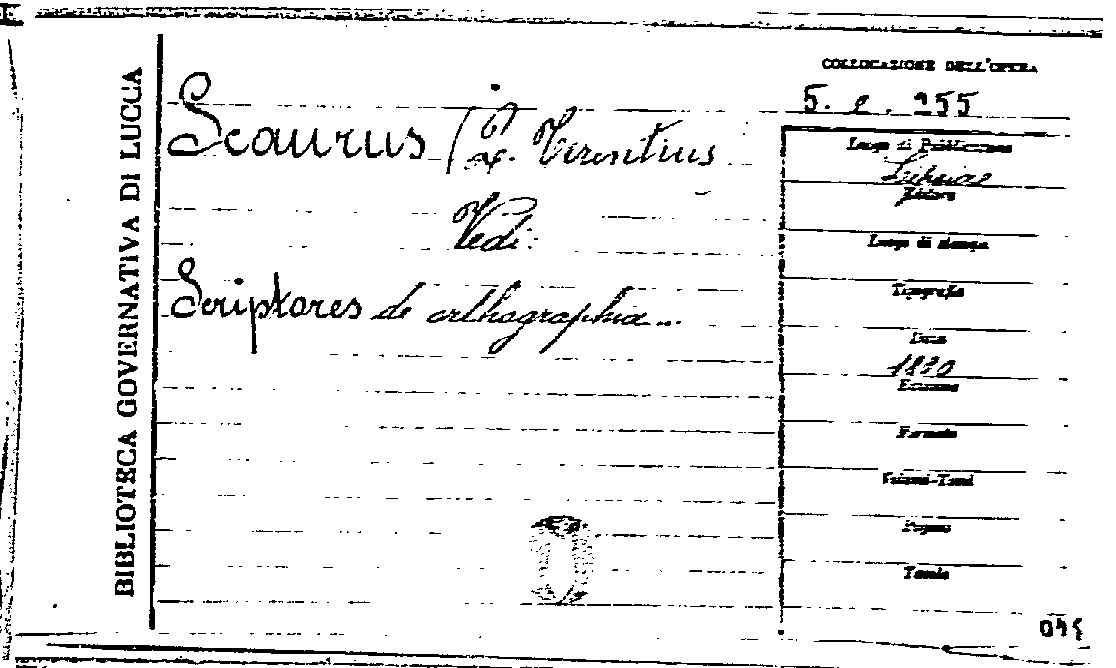 BIBLIOTECA GOVERNATIVA DI LUCCA
COLLOCAZIONE DELL'OPERA
Scaurus (Q. Terentius
Vedi:
Scriptores de orthographia...
Luogo di Pubblicazione
Lipsiae
Editore
Luogo di stampa
Tipografia
Data
Edizione
Formato
Volumi-Tomi
Pagine
Tavole